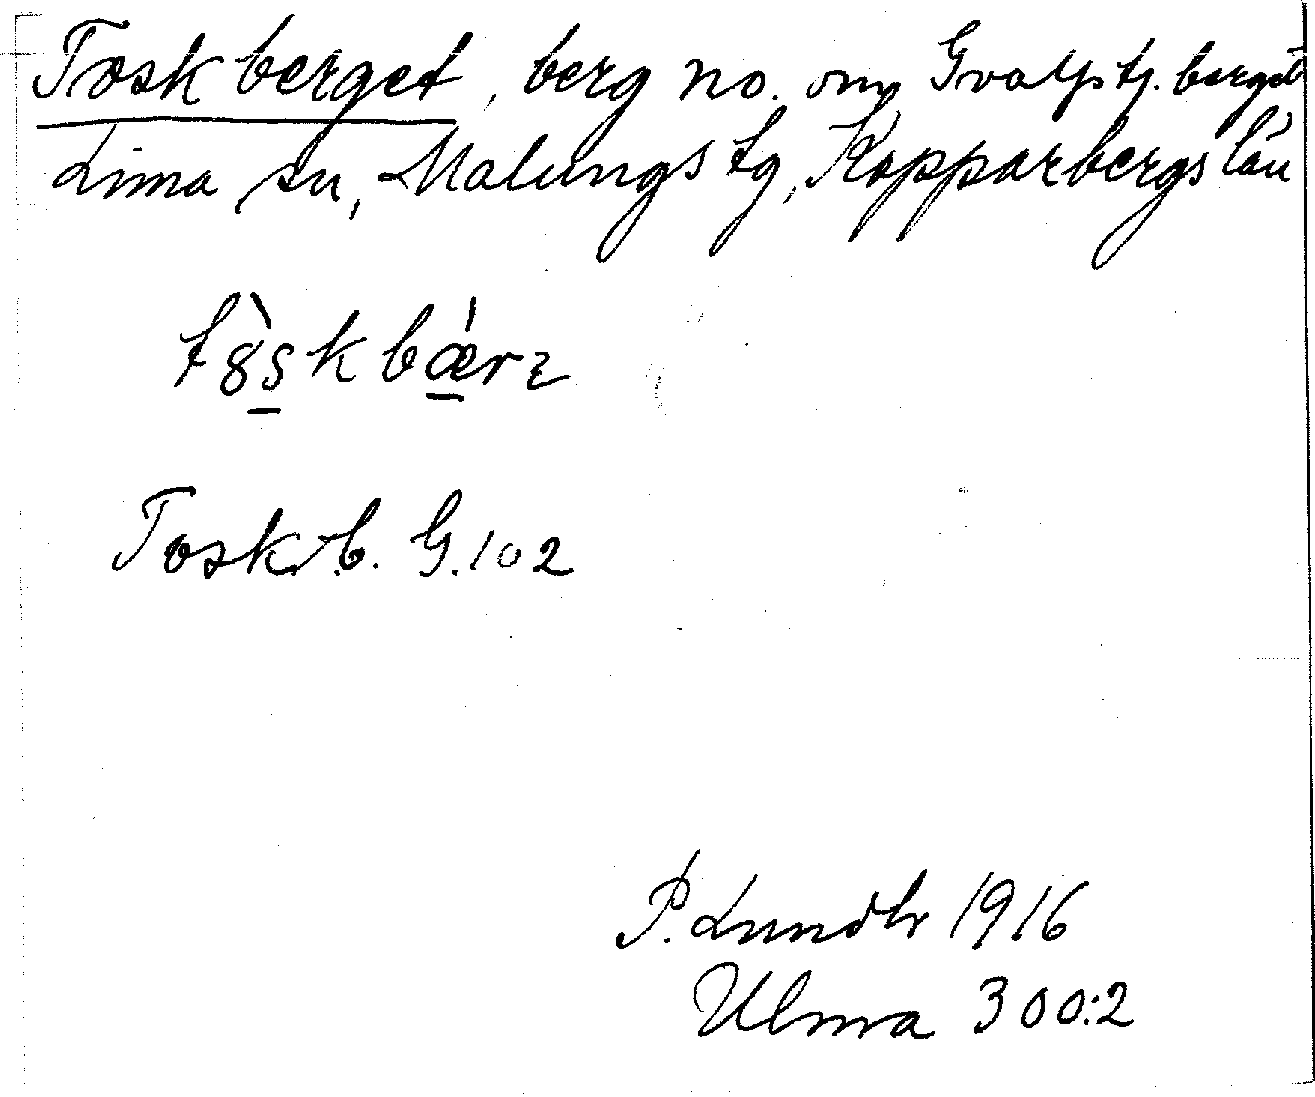 Toskberget, berg no. om Gvalstj.berget
Lima sn, Malungs tg, Kopparbergs län
Toskb. G. 102
P. Lundbr 1916
Ulma 300:2